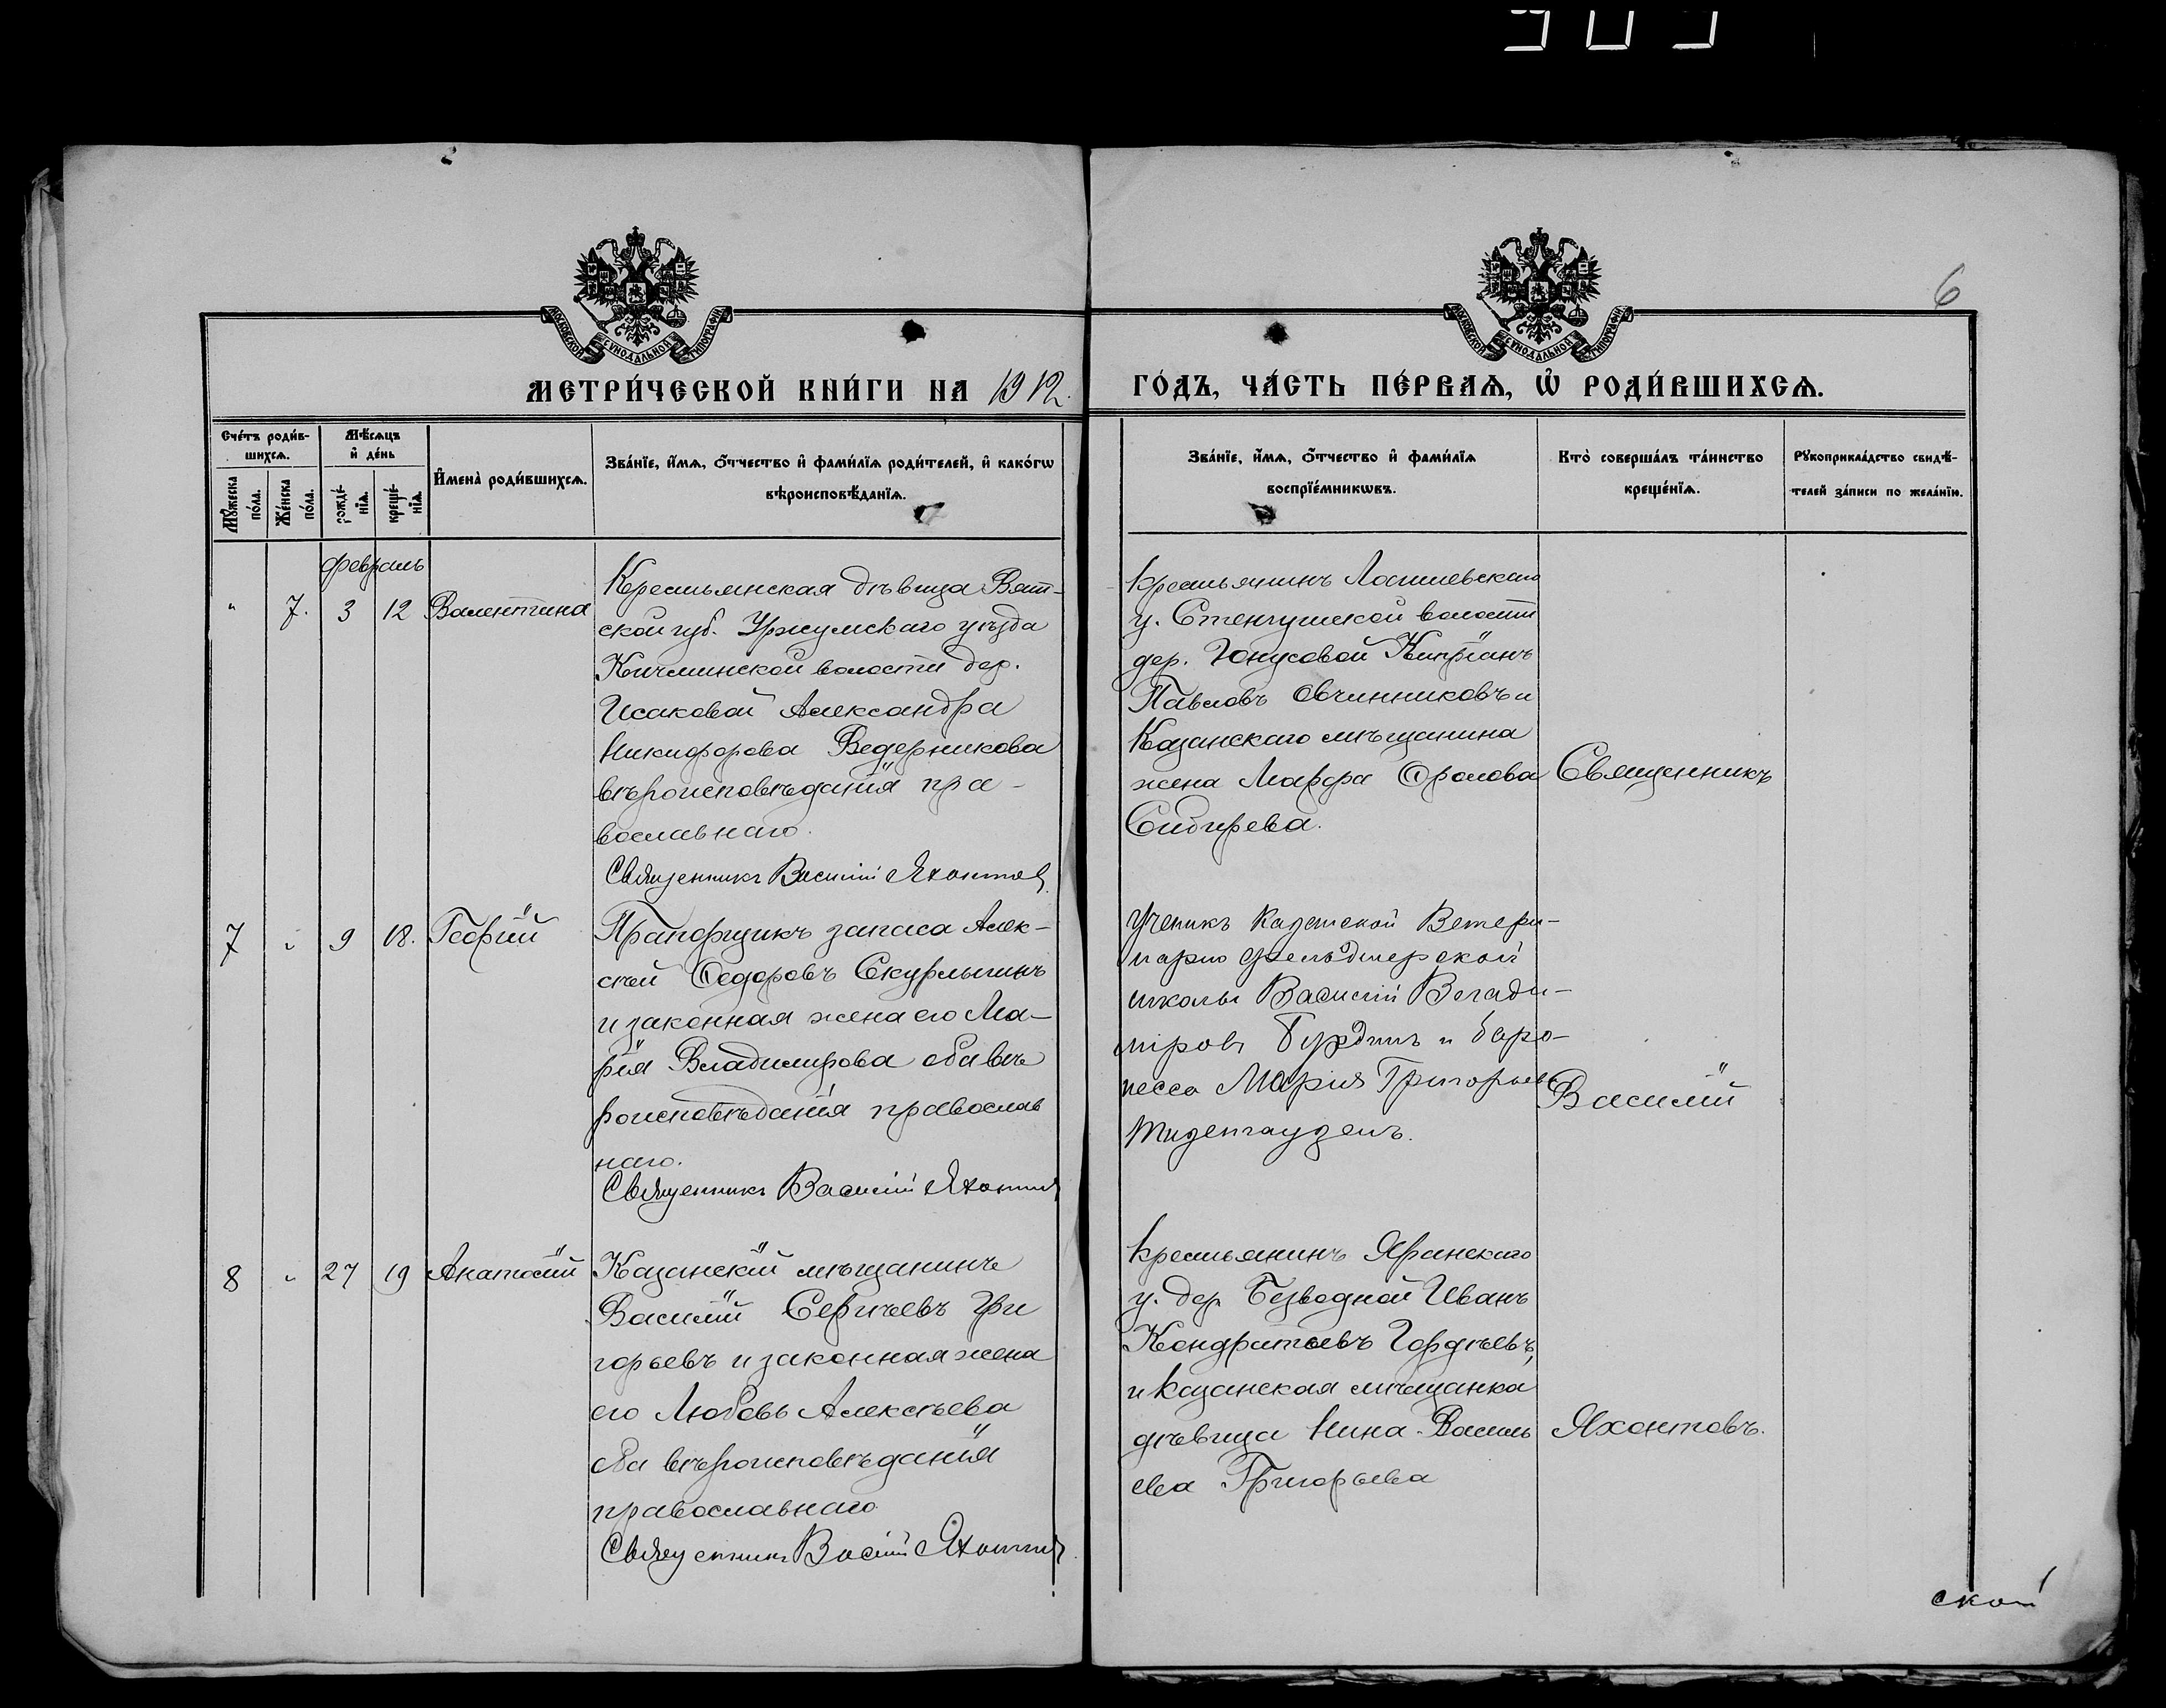 6
МЕТРИ́ЧЕСКОЙ КНИ́ГИ НА 1912.
ГО́ДЪ, ЧА́СТЬ ПЕ́РВАѦ, Ѡ҆ РОДИ́ВШИХСѦ.
Счетъ роди́в-
шихсѧ.
Му́жеска по́ла.
Же́нска по́ла.
Мѣ́сѧцъ
и҆ де́нь
рожде́-
нїѧ.
креще́-
нїѧ.
И҆мена̀ роди́вшихсѧ.
Зва́нїе, и҆́мѧ, ѻ҆́тчество и҆ фами́лїѧ роди́телей, и҆ како́гѡ
вѣроисповѣ́данїѧ.
Зва́нїе, и҆́мѧ, ѻ҆́тчество и҆ фами́лїѧ
воспрїе́мникѡвъ.
Кто̀ соверша́лъ та́инство
креще́нїѧ.
Рꙋкоприкла́дство свидѣ́-
телей за́писи по жела́нїю.
февраль
" 7. 3 12 Валентина
Крестьянская дѣвица Вят-
ской губ. Уржумскаго уѣзда
Кичминской волости дер.
Исаковой Александра
Никифорова Ведерникова
вѣроисповѣданія пра-
вославнаго.
Священникъ Василій Яхонтовъ
Крестьянинъ Лаишевскаго
у. волости
дер. Юнусовой Кипріанъ
Павловъ Овчинниковъ и
Казанскаго мѣщанина
жена Марфа Фролова
Сибирева.
Священникъ
7 " 9 18. Георгій
Прапорщикъ запаса Алек-
сѣй Ѳедоровъ Скурлыгинъ
и законная жена его Ма-
рія Владимирова оба вѣ
роисповѣданія православ
наго.
Священникъ Василій Яхонтовъ
Ученикъ Казанской Ветери-
нарно фельдшерской
школы Василій Влади-
міровъ Бурдинъ и баро-
несса Марія Григорьева
Тизенгаузенъ.
Василій
8 " 27 19 Анатолій
Казанскій мѣщанинъ
Василій Сергѣевъ Гри
горьевъ и законная жена
его Любовь Алексѣева
оба вѣроисповѣданія
православнаго
Священникъ Васілій Яхонтовъ
Крестьянинъ Яранскаго
у. дер. Безводной Иванъ
Кондратьевъ Гордѣевъ,
и Казанская мѣщанка
дѣвица Нина Василь
ева Григорьева
Яхонтовъ.
ской